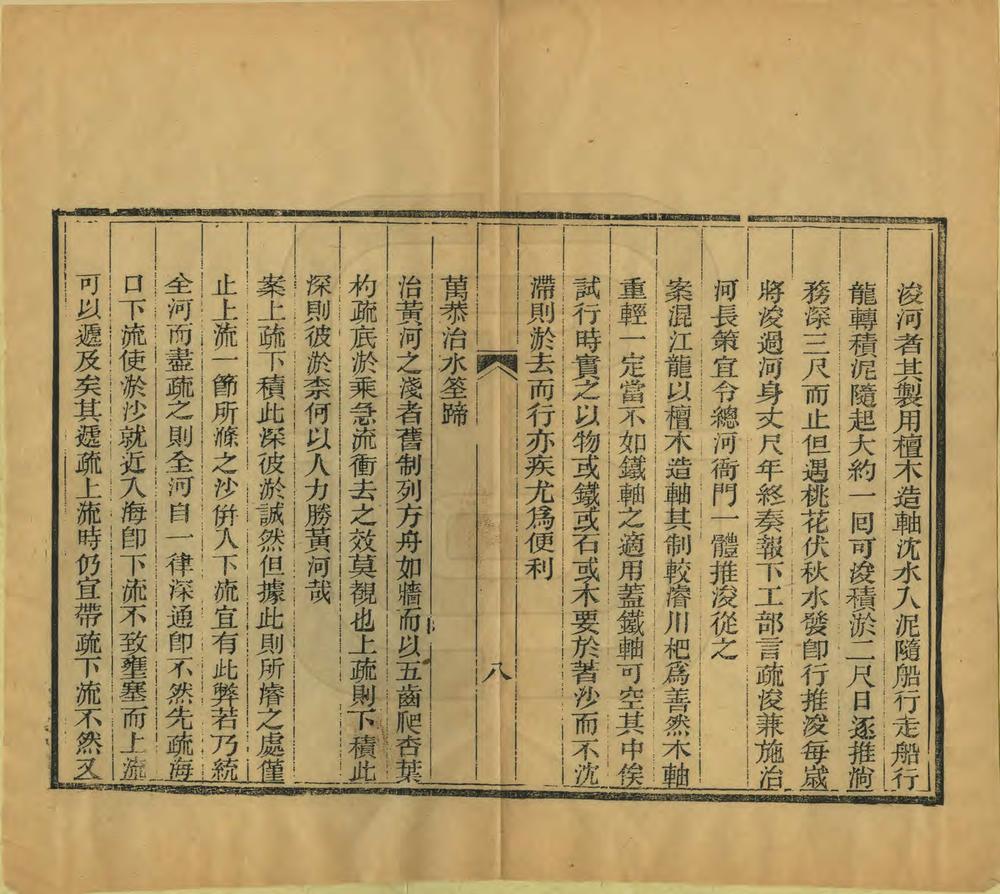 浚河者其製用檀木造軸沈水入泥隨船行走船行
龍轉積泥隨起大約一回可浚積淤二尺日逐推淌
務深三尺而止但遇桃花伏秋水發卽行推浚每歲
將浚過河身丈尺年終奏報下工部言疏浚兼施治
河長策宜令總河衙門一體推浚從之
案混江龍以檀木造軸其制較濬川杷爲善然木軸
重輕一定當不如鐵軸之適用蓋鐵軸可空其中俟
試行時實之以物或鐵或石或木要於著沙而不沈
滯則淤去而行亦疾尤爲便利
八
萬恭治水筌蹄
治黃河之淺者舊制列方舟如牆而以五齒爬杏葉
杓疏底淤乘急流衝去之效莫覩也上疏則下積此
深則彼淤柰何以人力勝黃河哉
案上疏下積此深彼淤誠然但據此則所濬之處僅
止上流一節所滌之沙倂入下流宜有此弊若乃統
全河而盡疏之則全河自一律深通卽不然先疏海
口下流使淤沙就近入海卽下流不致壅塞而上流
可以遞及矣其遞疏上流時仍宜帶疏下流不然又